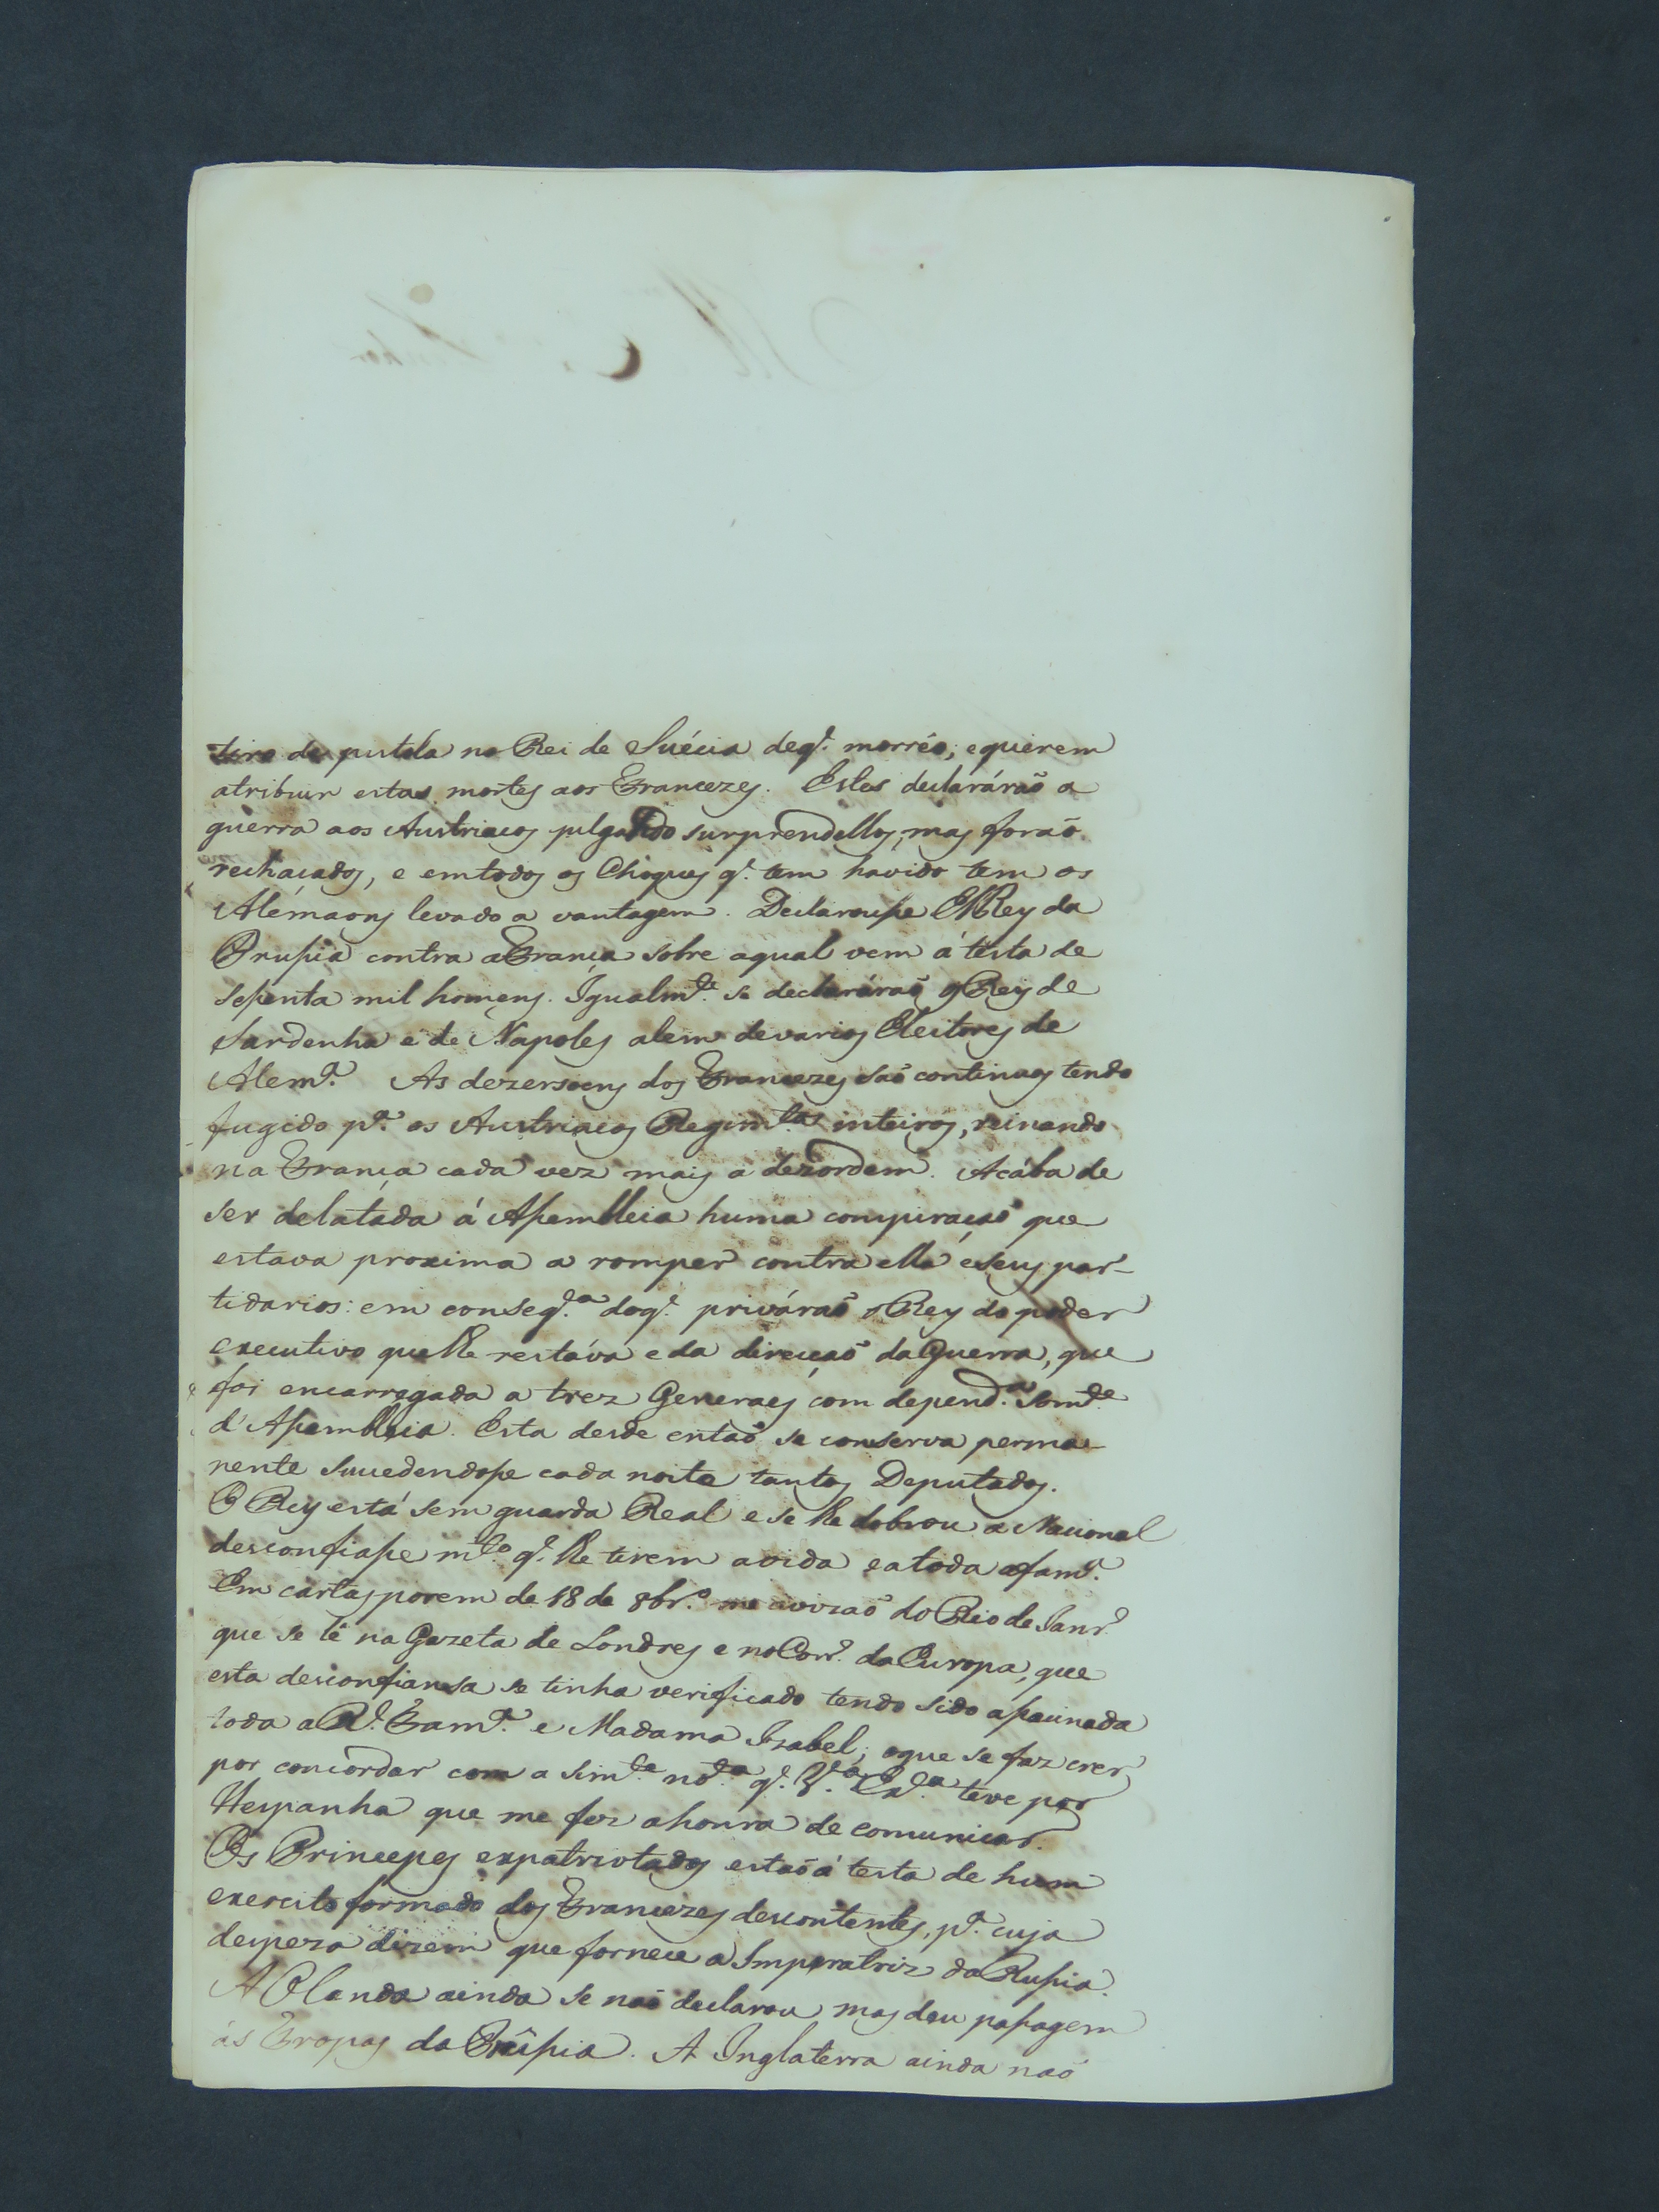 tiro de pistola no Rei de Suécia deq.^ morréo; equerem
atribuir estas mortes aos Francezes. Estes declarárão a
guerra aos Austriacos julgando surprendellos, mas forão
rechaçados, e emtodos os Choques q.^ tem havido tem os
Alémaons levado a vantagem. Declarousse ElRey da
Prussia contra aFrança sobre aqual vem á tésta de
sessenta mil homens. Igualm.te se declarárão oRey de
Sardenha e de Napoles alem devarios Eleitores de
Alem.^a As dezersoens dos Francezes são continuas tendo
fugido p.^a os Austriacos Regim.tos inteiros, reinando
na França cada vez mais a dezordem. Acába de
ser delatada á Assemblleia huma conspiração que
estava proxima a romper contra ella eseus par-
tidarios: em conseq.^a doq.^ privárão oRey do poder
executivo quelhe restáva eda direcção daGuerra, que
foi encarregada a trez Generaes com depend.^a som.te
d'Assemblleia. Esta desde então se conserva perma-
nente succedendosse cada noite tantos Deputados.
O Rey está sem guarda Real e se lhe dobrou a Nacional
desconfiasse m.to q.^ lhe tirem avida eatoda afam.^a
Em cartas porem de 18 de 8br.o me avizão do Rio de Janr.o
que se lê na Gazeta de Londres e noCorr.o daEuropa, que
esta desconfiansa se tinha verificado tendo sido assacinada
toda aR.^l Fam.^a e Madama Izabel; oque se faz crer
por concordar com a sim.te not.^a q.^ V.^a Ex.^a teve por
Hespanha que me fez ahonra de comunicar.
Os Princepes expatriotados estão á testa de hum
exercito formado dos Francezes descontentes, p.^a cuja
despeza dizem que fornece a Imperatriz daRussia.
A Olanda ainda se não declarou mas deu passagem
ás Tropas da Prûssia. A Inglaterra ainda não